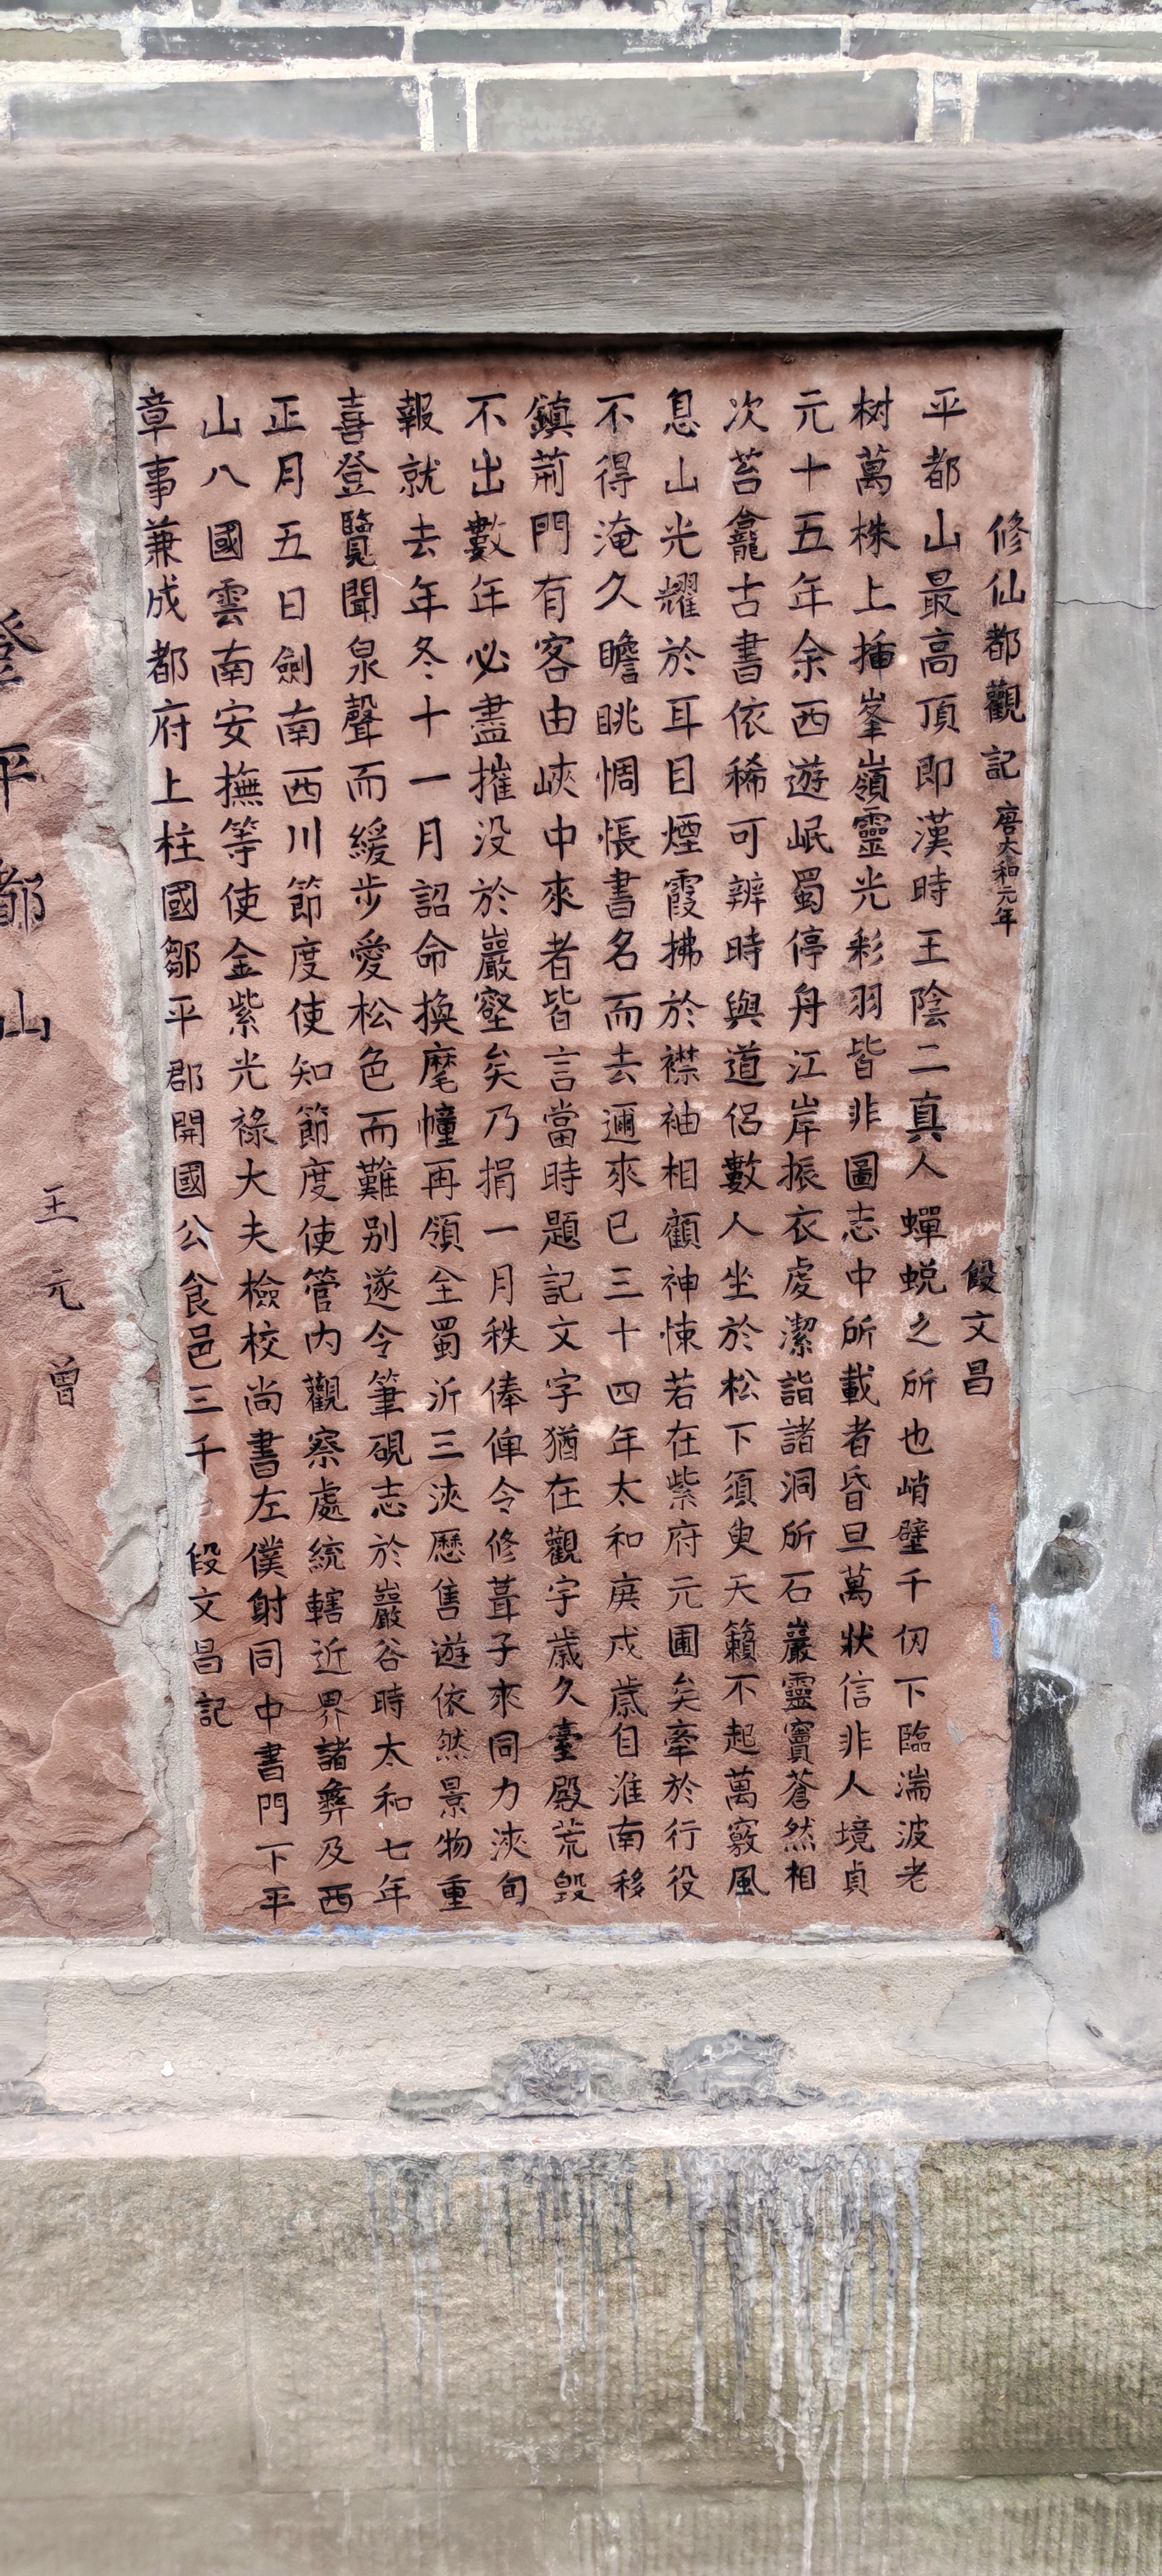 修仙都觀記 唐太和元年
段文昌
平都山最高頂即漢時王陰二真人蟬蛻之所也峭壁千仞下臨湍波老
树萬株上插峯嶺靈光彩羽皆非圖志中所載者昏旦萬狀信非人境貞
元十五年余西遊岷蜀停舟江岸振衣虔潔詣諸洞所石巖靈竇蒼然相
次苔龕古書依稀可辨時與道侶數人坐於松下須臾天籟不起萬竅風
息山光耀於耳目煙霞拂於襟袖相顧神悚若在紫府元圃矣牽於行役
不得淹久瞻眺惆悵書名而去邇來已三十四年太和庚戌歳自淮南移
鎮荊門有客由峽中來者皆言當時題記文字猶在觀宇歳久臺殿荒毀
不出數年必盡摧没於巖壑矣乃捐一月秩俸俾令修葺子來同力浹旬
報就去年冬十一月詔命換麾幢再領全蜀沂三浹歷舊遊依然景物重
喜登覽聞泉聲而緩步愛松色而難别遂令筆硯志於巖谷時太和七年
正月五日劍南西川節度使知節度使管内觀察處統轄近界諸彝及西
山八國雲南安撫等使金紫光祿大夫檢校尚書左僕射同中書門下平
章事兼成都府上柱國鄒平郡開國公食邑三千 段文昌記
登平都山
王元曾